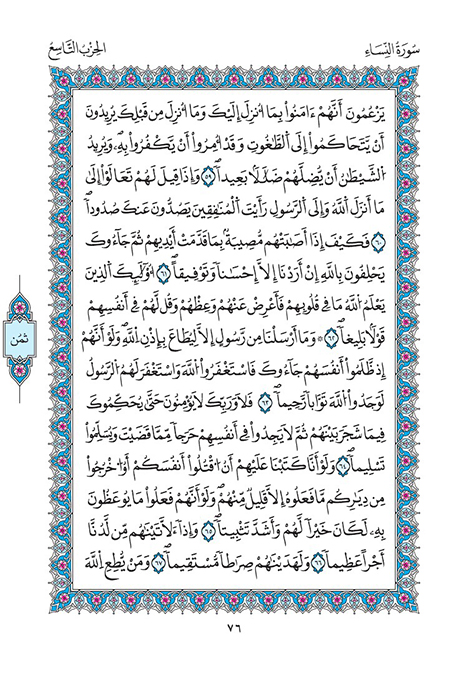 سُورَةُ النِّسَاءِ
الحِزْبُ التَّاسِعُ
يَزْعُمُونَ أَنَّهُمْ ءَامَنُواْ بِمَا أُنزِلَ إِلَيْكَ وَمَا أُنزِلَ مِن قَبْلِكَ يُرِيدُونَ
أَنْ يَّتَحَاكَمُواْ إِلَى اَلطَّٰغُوتِ وَقَدُ ا۟مِرُواْ أَنْ يَّكْفُرُواْ بِهِۦ وَيُرِيدُ
اُلشَّيْطَٰنُ أَنْ يُّضِلَّهُمْ ضَلَٰلاَۢ بَعِيداٗ ٥٩ وَإِذَا قِيلَ لَهُمْ تَعَالَوِاْ اِلَىٰ
مَا أَنزَلَ اَللَّهُ وَإِلَى اَلرَّسُولِ رَأَيْتَ اَلْمُنَٰفِقِينَ يَصُدُّونَ عَنكَ صُدُوداٗ
٦٠ فَكَيْفَ إِذَا أَصَٰبَتْهُم مُّصِيبَةُۢ بِمَا قَدَّمَتَ اَيْدِيهِمْ ثُمَّ جَآءُوكَ
يَحْلِفُونَ بِاللَّهِ إِنَ اَرَدْنَا إِلاَّ إِحْسَٰناٗ وَتَوْفِيقاٗ ٦١ ا۟وْلَٰئِكَ اَلذِينَ
يَعْلَمُ اُللَّهُ مَا فِے قُلُوبِهِمْ فَأَعْرِضْ عَنْهُمْ وَعِظْهُمْ وَقُل لَّهُمْ فِے أَنفُسِهِمْ
قَوْلاَۢ بَلِيغاٗ ٦٢ ۞ وَمَا أَرْسَلْنَا مِن رَّسُولٍ اِلاَّ لِيُطَاعَ بِإِذْنِ اِللَّهِ وَلَوَ اَنَّهُمْ
إِذ ظَّلَمُواْ أَنفُسَهُمْ جَآءُوكَ فَاسْتَغْفَرُواْ اُللَّهَ وَاسْتَغْفَرَ لَهُمُ اُلرَّسُولُ
لَوَجَدُواْ اُللَّهَ تَوَّاباٗ رَّحِيماٗ ٦٣ فَلاَ وَرَبِّكَ لاَ يُومِنُونَ حَتَّىٰ يُحَكِّمُوكَ
فِيمَا شَجَرَ بَيْنَهُمْ ثُمَّ لاَ يَجِدُواْ فِے أَنفُسِهِمْ حَرَجاٗ مِّمَّا قَضَيْتَ وَيُسَلِّمُواْ
تَسْلِيماٗ ٦٤ وَلَوَ اَنَّا كَتَبْنَا عَلَيْهِمُ أَنُ ا۟قْتُلُواْ أَنفُسَكُمُ أَوُ ا۟خْرُجُواْ
مِن دِيٰرِكُم مَّا فَعَلُوهُ إِلاَّ قَلِيلٞ مِّنْهُمْ وَلَوَ اَنَّهُمْ فَعَلُواْ مَا يُوعَظُونَ
بِهِۦ لَكَانَ خَيْراٗ لَّهُمْ وَأَشَدَّ تَثْبِيتاٗ ٦٥ وَإِذاٗ ءَلَّأتَيْنَٰهُم مِّن لَّدُنَّا
أَجْراً عَظِيماٗ ٦٦ وَلَهَدَيْنَٰهُمْ صِرَٰطاٗ مُّسْتَقِيماٗ ٦٧ وَمَنْ يُّطِعِ اِللَّهَ
ثُمُن
٧٦